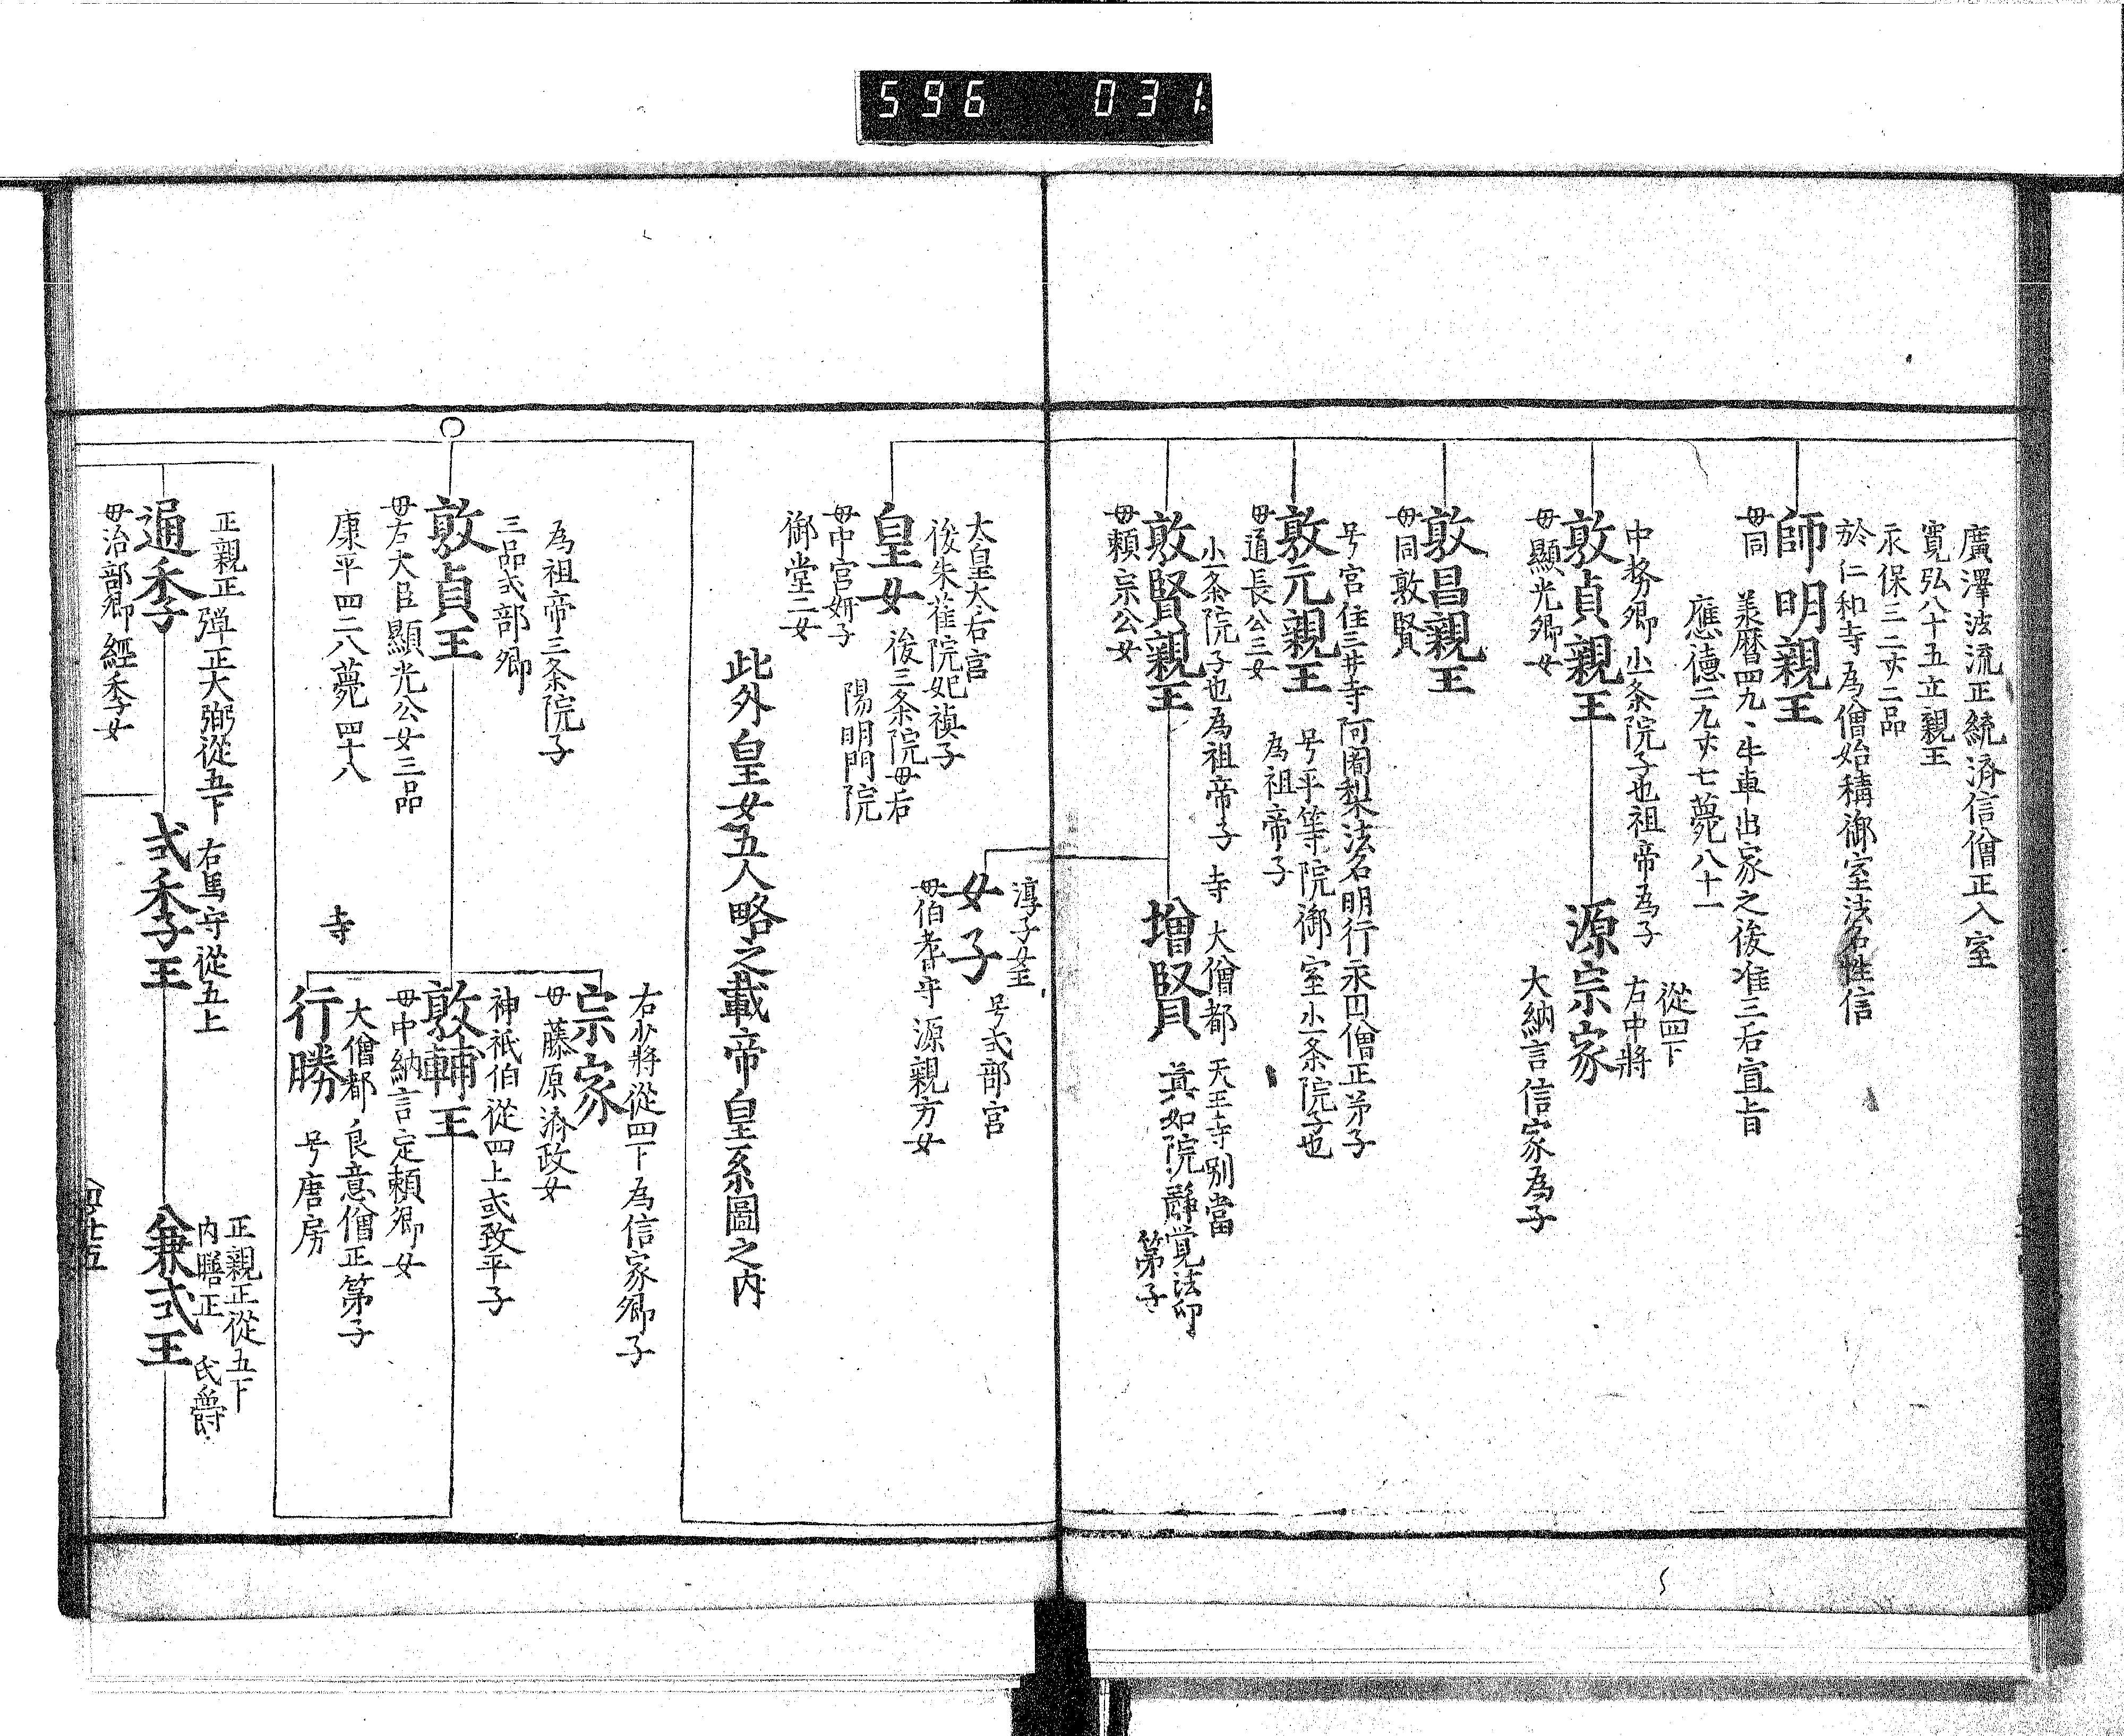 596 031
廣澤法流正統済信僧正入室
寛弘八十五立親王
永保三二廿二品
於仁和寺為僧始稱御室法名性信
師明親王
母同
羕暦四九、牛車出家之後准三后宣旨
應徳二九廿七薨八十一
中務卿小一条院子也祖帝為子
敦貞親王
母顯光卿女
從四下
右中將
源宗家
大納言信家為子
敦昌親王
母同敦賢
号宮住三井寺阿闍梨法名明行永円僧正弟子
敦元親王
母道長公三女
号平等院御室小一条院子也
為祖帝子
小一条院子也為祖帝子
敦賢親王
母頼宗公女
寺 大僧都 天王寺別當
增賢
真如院靜覚法印
第子
淳子女王
女子
号式部宮
母伯耆守源親方女
太皇太后宮
後朱雀院妃禎子
皇女
後三条院母后
陽明門院
母中宮妍子
御堂二女
此外皇女五人略之載帝皇系圖之内
為祖帝三条院子
三品式部卿
敦貞王
母左大臣顯光公女三品
康平四二八薨四十八
右少將從四下為信家卿子
宗家
母藤原済政女
神祇伯從四上或致平子
敦輔王
母中納言定頼卿女
寺
大僧都 良意僧正第子
行勝
号唐房
正親正 弾正大弼從五下
通季
母治部卿經季女
右馬守從五上
式季王
正親正從五下
内膳正 氏爵
兼式王
四廿五